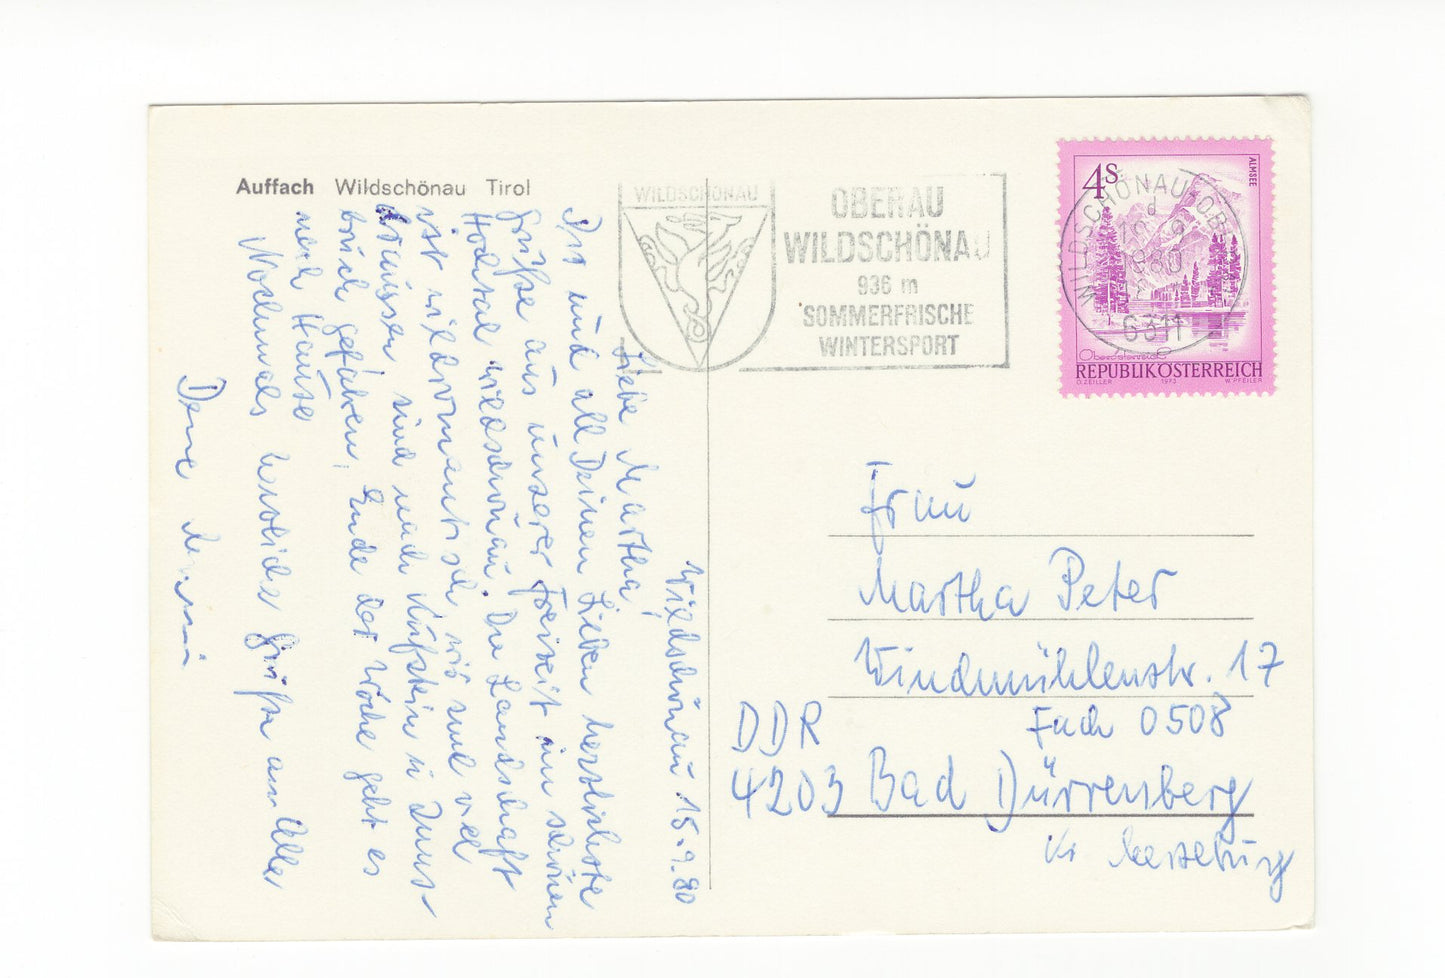 Auffach Wildschönau Tirol
WILDSCHÖNAU
OBERAU
WILDSCHÖNAU
936 m
SOMMERFRISCHE
WINTERSPORT
4S
ALMSEE
Oberösterreich
REPUBLIK ÖSTERREICH
O. ZEILLER 1973 W. PFEILER
WILDSCHÖNAU-OB
d
1980
6311
Wildschönau 15.9.80
Liebe Martha,
Dir und all Deinen Lieben herzlichste
Grüße aus unserer Freizeit im schönen
Hochtal Wildschönau. Die Landschaft
ist wildromantisch wir sind viel
draussen sind nach Kufstein u Inns-
bruck gefahren, Ende der Woche geht es
nach Hause
Nochmals herzliche Grüße an Alle
Deine
Frau
Martha Peter
Windmühlenstr. 17
Fach 0508
DDR
4203 Bad Dürrenberg
Kr Merseburg